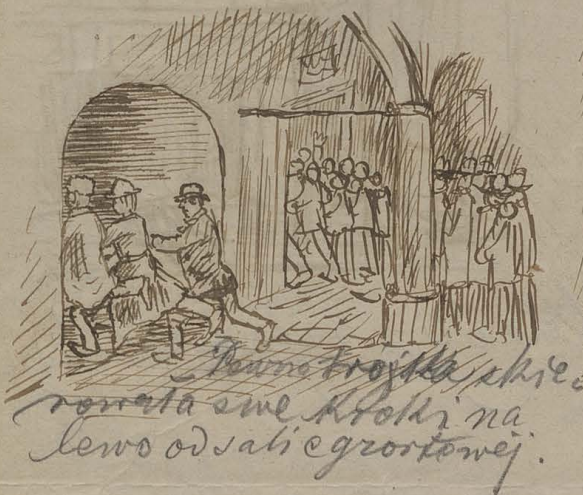 Pewna trójka skie-
rowała swe kroki na
lewo od sali egzortowej.